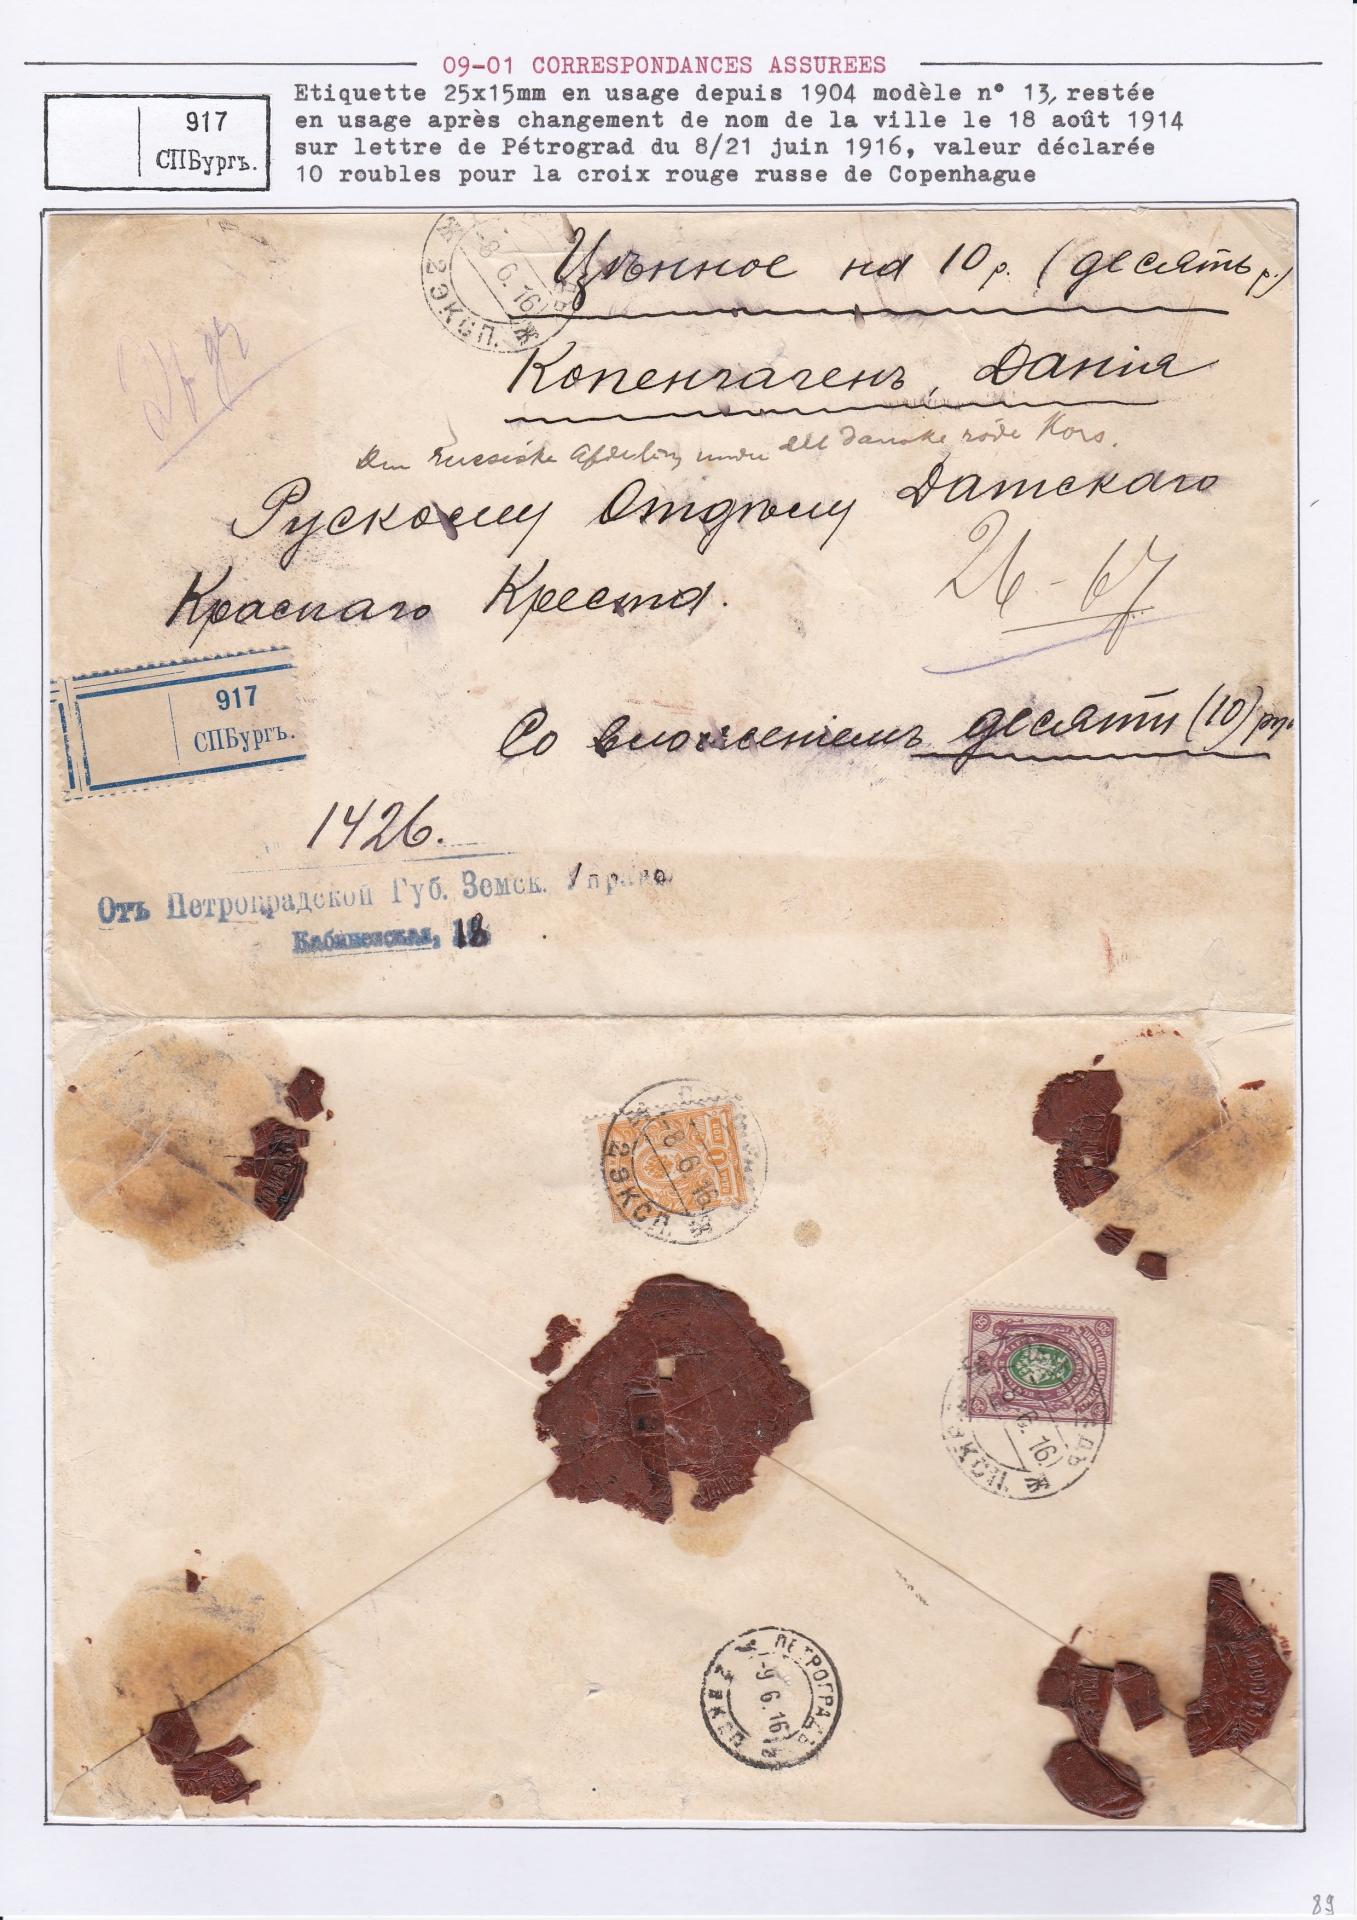 09-01 CORRESPONDANCES ASSUREES
Etiquette 25x15mm en usage depuis 1904 modèle n° 13, restée
en usage après changement de nom de la ville le 18 août 1914
sur lettre de Pétrograd du 8/21 juin 1916, valeur déclarée
10 roubles pour la croix rouge russe de Copenhague
917
СПБургъ.
-8.6.16
2 ЭКСП.
Цѣнное на 10 р. (десять р.)
Копенгагенъ, Данія
Den russiske Afdeling under det Danske røde Kors.
Рускому Отдѣлу Датскаго
Краснаго Креста.
26-67
917
СПБургъ.
Со вложеніемъ десяти (10) руб
1426.
Отъ Петроградской Губ. Земск. Управы
Кабинетская, 18
1
-8.6.16
2 ЭКСП.
35
6.16
ПЕТРОГРАДЪ
-9.6.16
2 ЭКСП
89